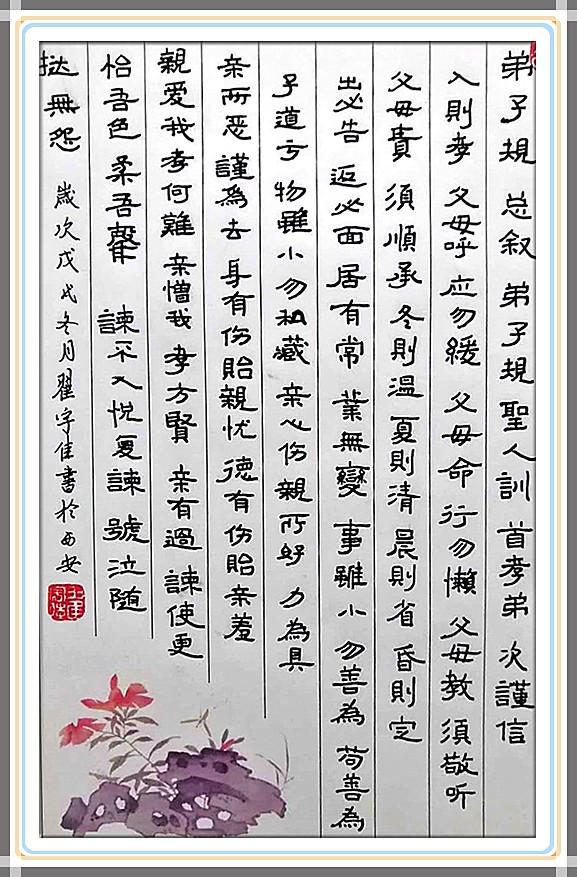 弟子規 总叙 弟子規 聖人訓 首孝弟 次謹信
入則孝 父母呼 应勿緩 父母命 行勿懶 父母教 須敬听
父母責 須順承 冬則温 夏則清 晨則省 昏則定
出必告 返必面 居有常 業無變 事雖小 勿善為 苟善為
子道亏 物雖小 勿私藏 亲心伤 親所好 力為具
亲所恶 謹為去 身有伤 貽親忧 德有伤 貽亲羞
親爱我 孝何難 亲憎我 孝方賢 亲有過 諫使更
怡吾色 柔吾聲 諫不入 悦复諫 號泣随
挞無怨 歲次戊戌冬月翟宇佳書於西安